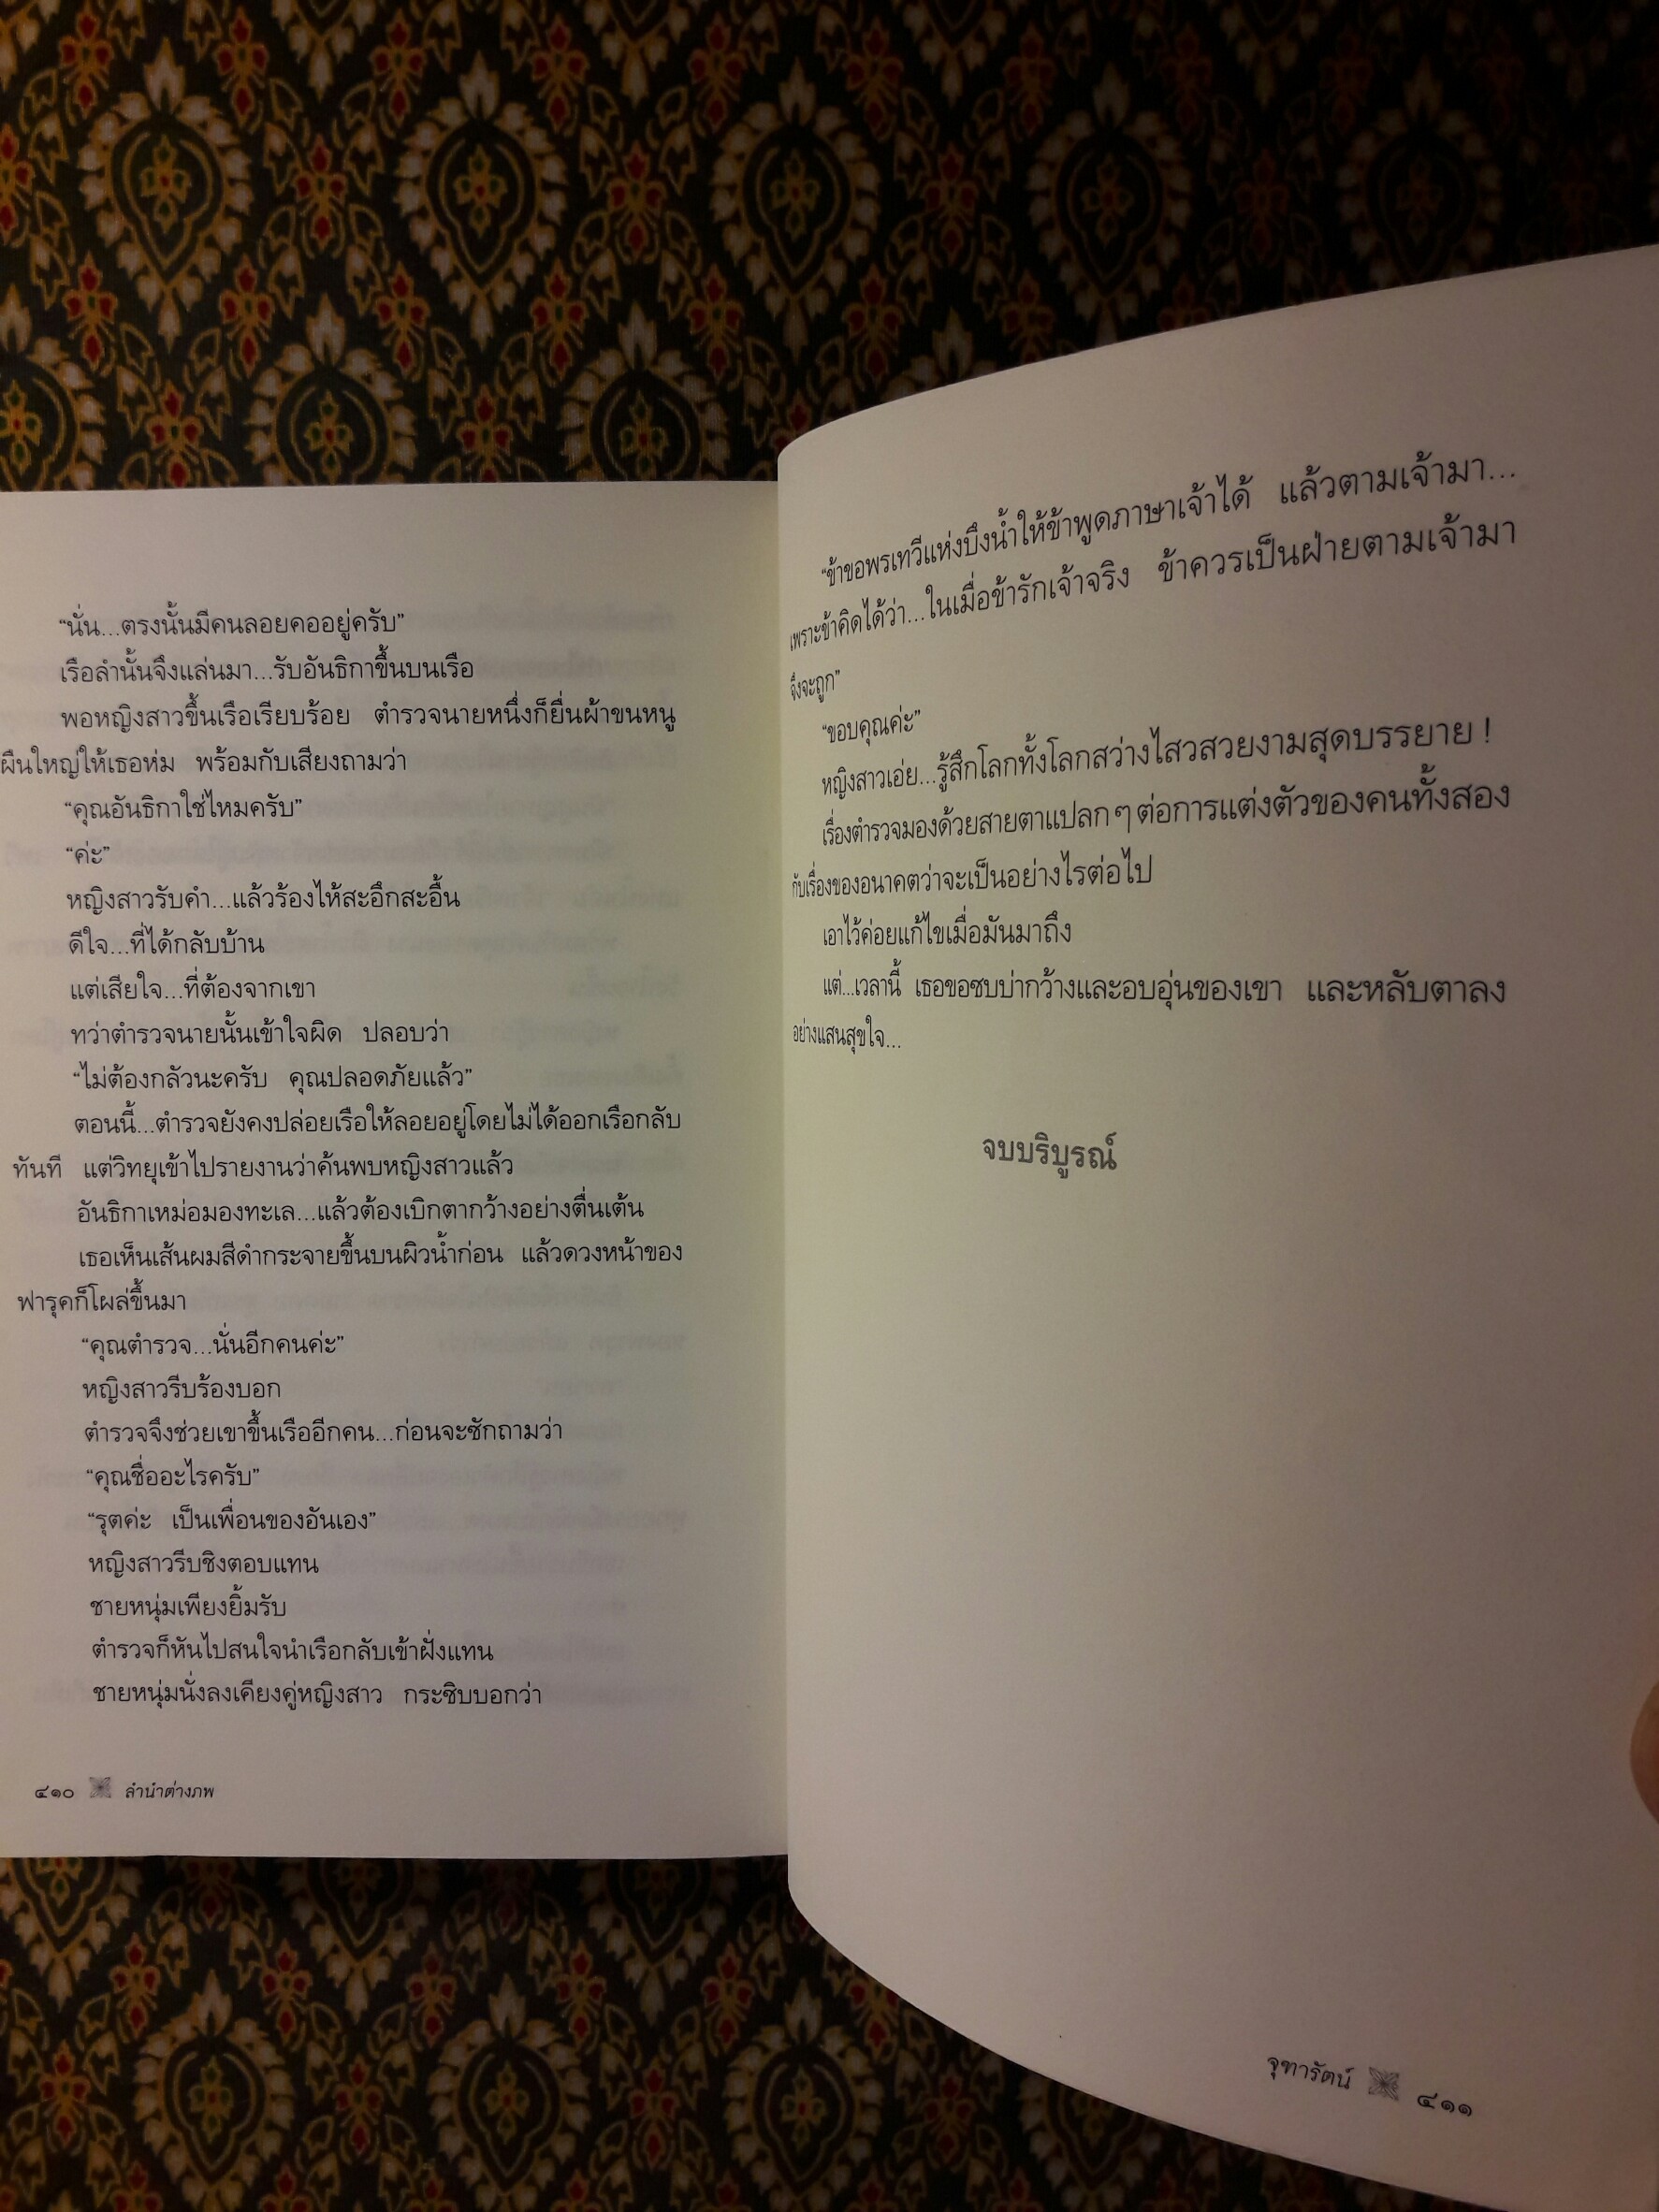 “นั่น...ตรงนั้นมีคนลอยคออยู่ครับ”
เรือลำนั้นจึงแล่นมา...รับอันธิกาขึ้นบนเรือ
พอหญิงสาวขึ้นเรือเรียบร้อย ตำรวจนายหนึ่งก็ยื่นผ้าขนหนู
ผืนใหญ่ให้เธอห่ม พร้อมกับเสียงถามว่า
“คุณอันธิกาใช่ไหมครับ”
“ค่ะ”
หญิงสาวรับคำ...แล้วร้องไห้สะอึกสะอื้น
ดีใจ...ที่ได้กลับบ้าน
แต่เสียใจ...ที่ต้องจากเขา
ทว่าตำรวจนายนั้นเข้าใจผิด ปลอบว่า
“ไม่ต้องกลัวนะครับ คุณปลอดภัยแล้ว”
ตอนนี้...ตำรวจยังคงปล่อยเรือให้ลอยอยู่โดยไม่ได้ออกเรือกลับ
ทันที แต่วิทยุเข้าไปรายงานว่าค้นพบหญิงสาวแล้ว
อันธิกาเหม่อมองทะเล...แล้วต้องเบิกตากว้างอย่างตื่นเต้น
เธอเห็นเส้นผมสีดำกระจายขึ้นบนผิวน้ำก่อน แล้วดวงหน้าของ
ฟารุคก็โผล่ขึ้นมา
“คุณตำรวจ...นั่นอีกคนค่ะ”
หญิงสาวรีบร้องบอก
ตำรวจจึงช่วยเขาขึ้นเรืออีกคน...ก่อนจะซักถามว่า
“คุณชื่ออะไรครับ”
“รุตค่ะ เป็นเพื่อนของอันเอง”
หญิงสาวรีบชิงตอบแทน
ชายหนุ่มเพียงยิ้มรับ
ตำรวจก็หันไปสนใจนำเรือกลับเข้าฝั่งแทน
ชายหนุ่มนั่งลงเคียงคู่หญิงสาว กระซิบบอกว่า
๔๑๐ ลำนำต่างภพ
“ข้าขอพรเทวีแห่งบึงน้ำให้ข้าพูดภาษาเจ้าได้ แล้วตามเจ้ามา...
เพราะข้าคิดได้ว่า...ในเมื่อข้ารักเจ้าจริง ข้าควรเป็นฝ่ายตามเจ้ามา
จึงจะถูก”
“ขอบคุณค่ะ”
หญิงสาวเอ่ย...รู้สึกโลกทั้งโลกสว่างไสวสวยงามสุดบรรยาย !
เรื่องตำรวจมองด้วยสายตาแปลก ๆ ต่อการแต่งตัวของคนทั้งสอง
กับเรื่องของอนาคตว่าจะเป็นอย่างไรต่อไป
เอาไว้ค่อยแก้ไขเมื่อมันมาถึง
แต่...เวลานี้ เธอขอซบบ่ากว้างและอบอุ่นของเขา และหลับตาลง
อย่างแสนสุขใจ...
จบบริบูรณ์
จุฑารัตน์ ๔๑๑